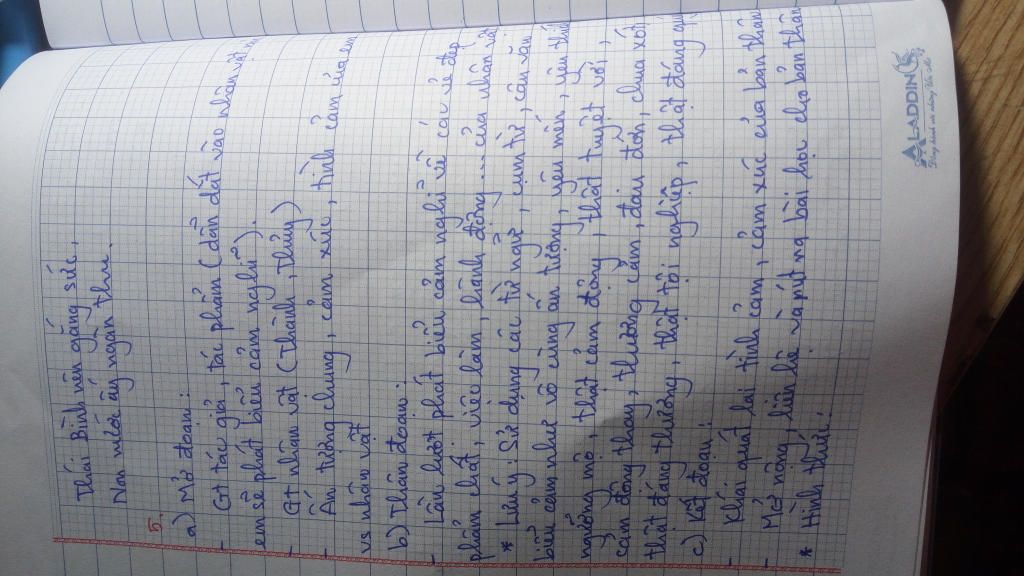 Thái Bình nên gắng sức,
Non nước ấy ngàn thu.
5.
a) Mở đoạn:
- Gt tác giả, tác phẩm (dẫn dắt vào nhân vật mà
em sẽ phát biểu cảm nghĩ).
- Gt nhân vật (Thành, Thủy)
- Ấn tượng chung, cảm xúc, tình cảm của em
vs nhân vật
b) Thân đoạn:
- Lần lượt phát biểu cảm nghĩ về các vẻ đẹp
phẩm chất, việc làm, hành động... của nhân vật
* Lưu ý: Sử dụng các từ ngữ, cụm từ, câu văn
biểu cảm như vô cùng ấn tượng, yêu mến, yêu thích
ngưỡng mộ, thật cảm động, thật tuyệt vời,
cảm động thay, thương cảm, đau đớn, chua xót,
thật đáng thương, thật tội nghiệp, thật đáng quý
c) Kết đoạn:
- Khái quát lại tình cảm, cảm xúc của bản thân
- Mở rộng, liên hệ và rút ra bài học cho bản thân
* Hình thức:
ALADDIN